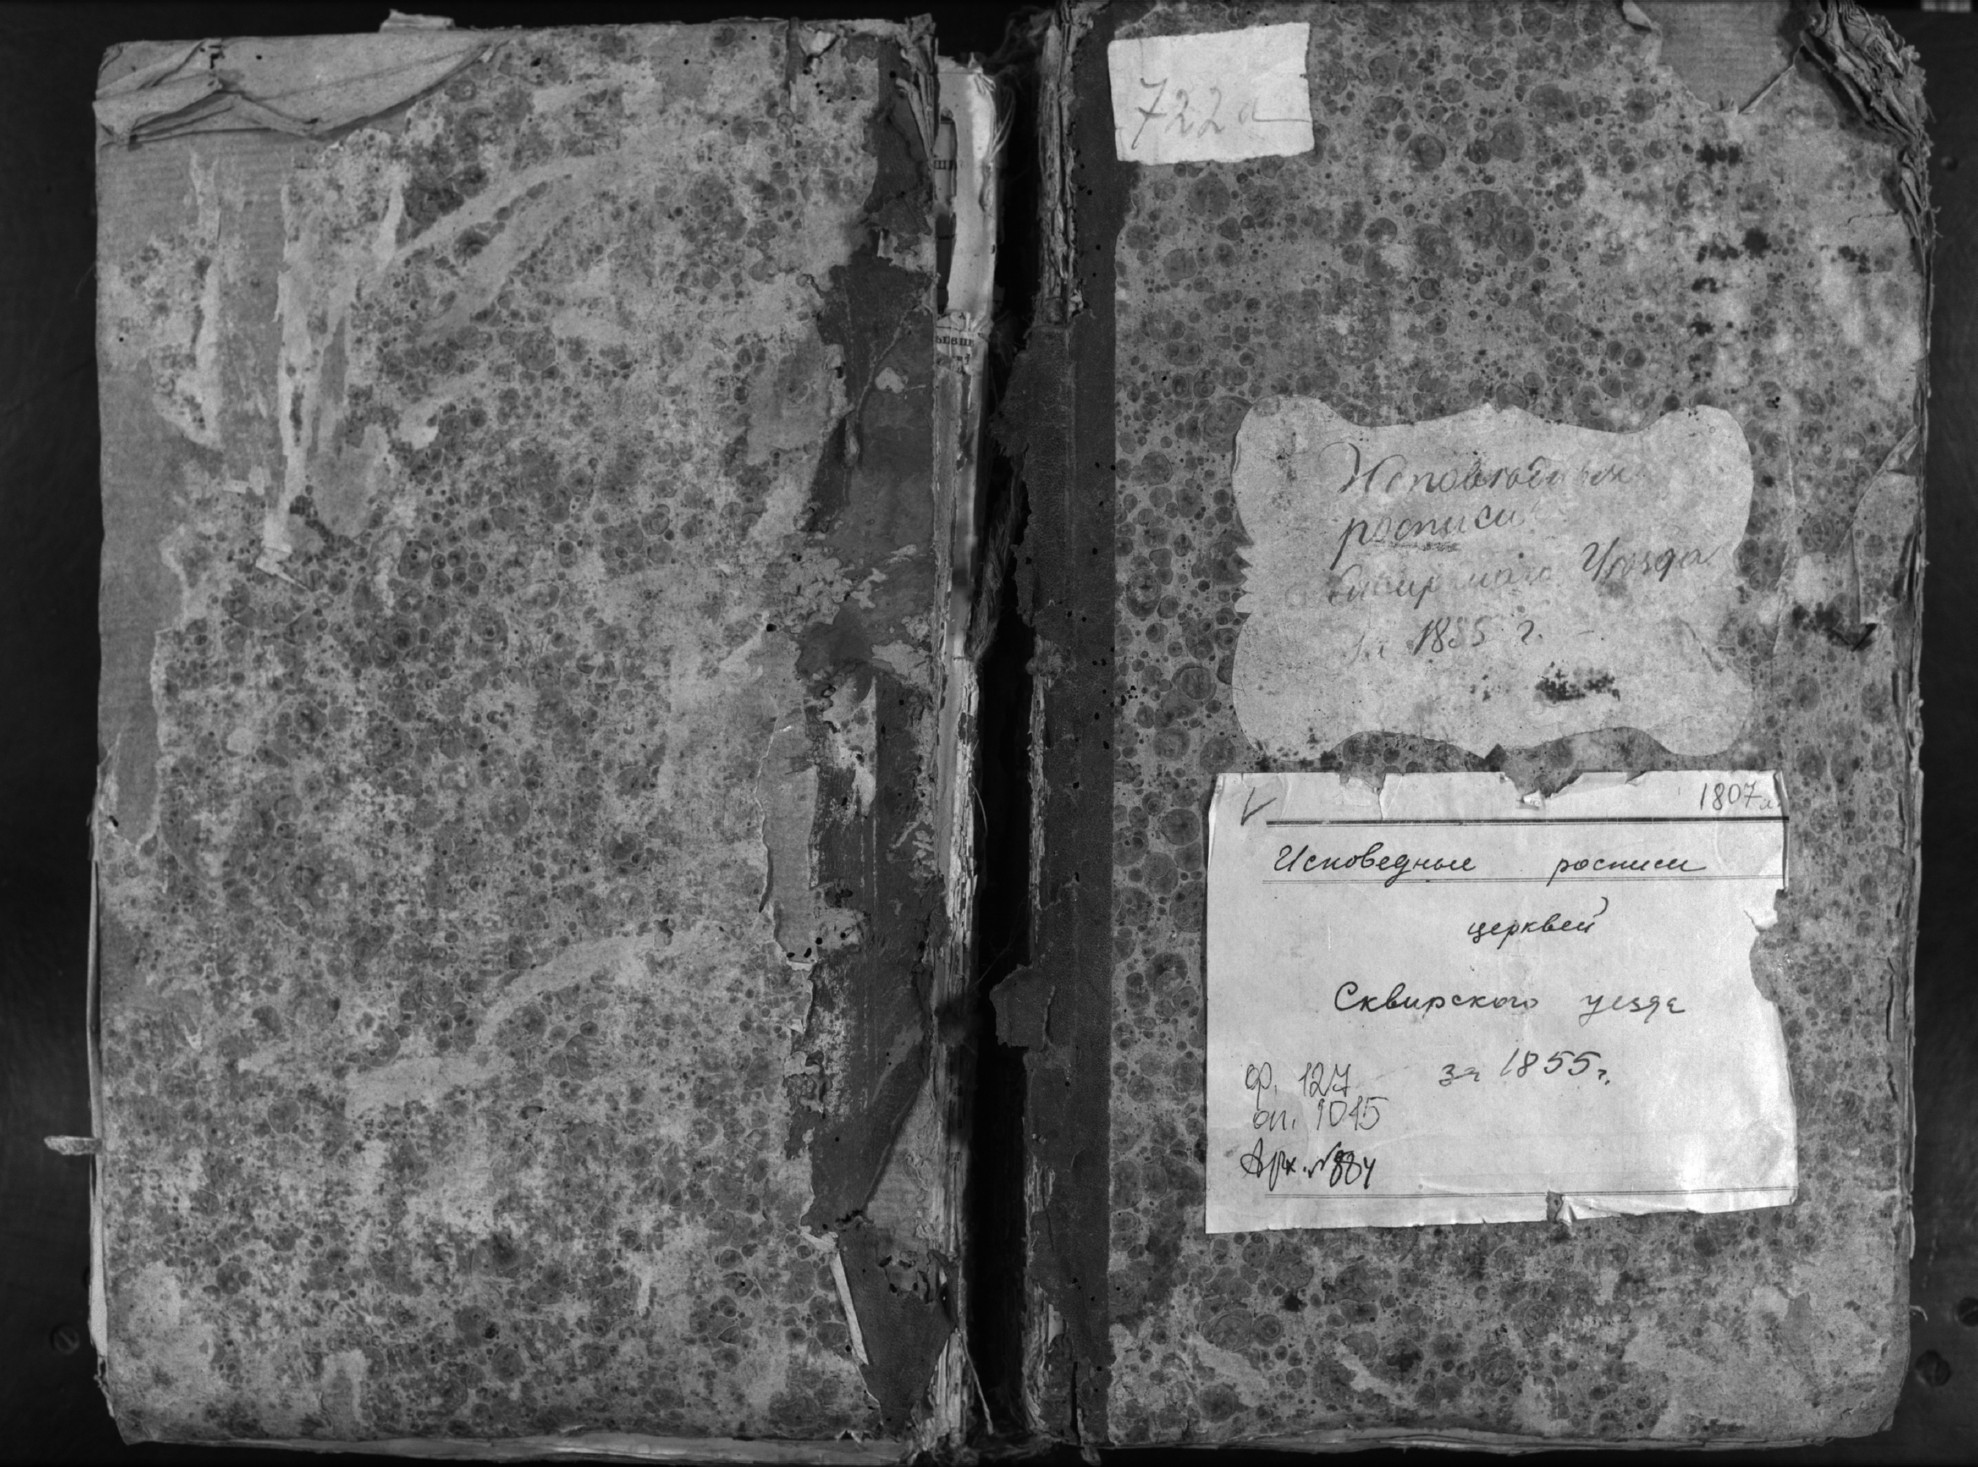 722а
Исповѣдныя
росписи
Сквирскаго Уѣзда
за 1855 г.
1807а
Исповедные росписи
церквей
Сквирского уезда
за 1855 г.
ф. 127
оп. 1015
Арх. № 884